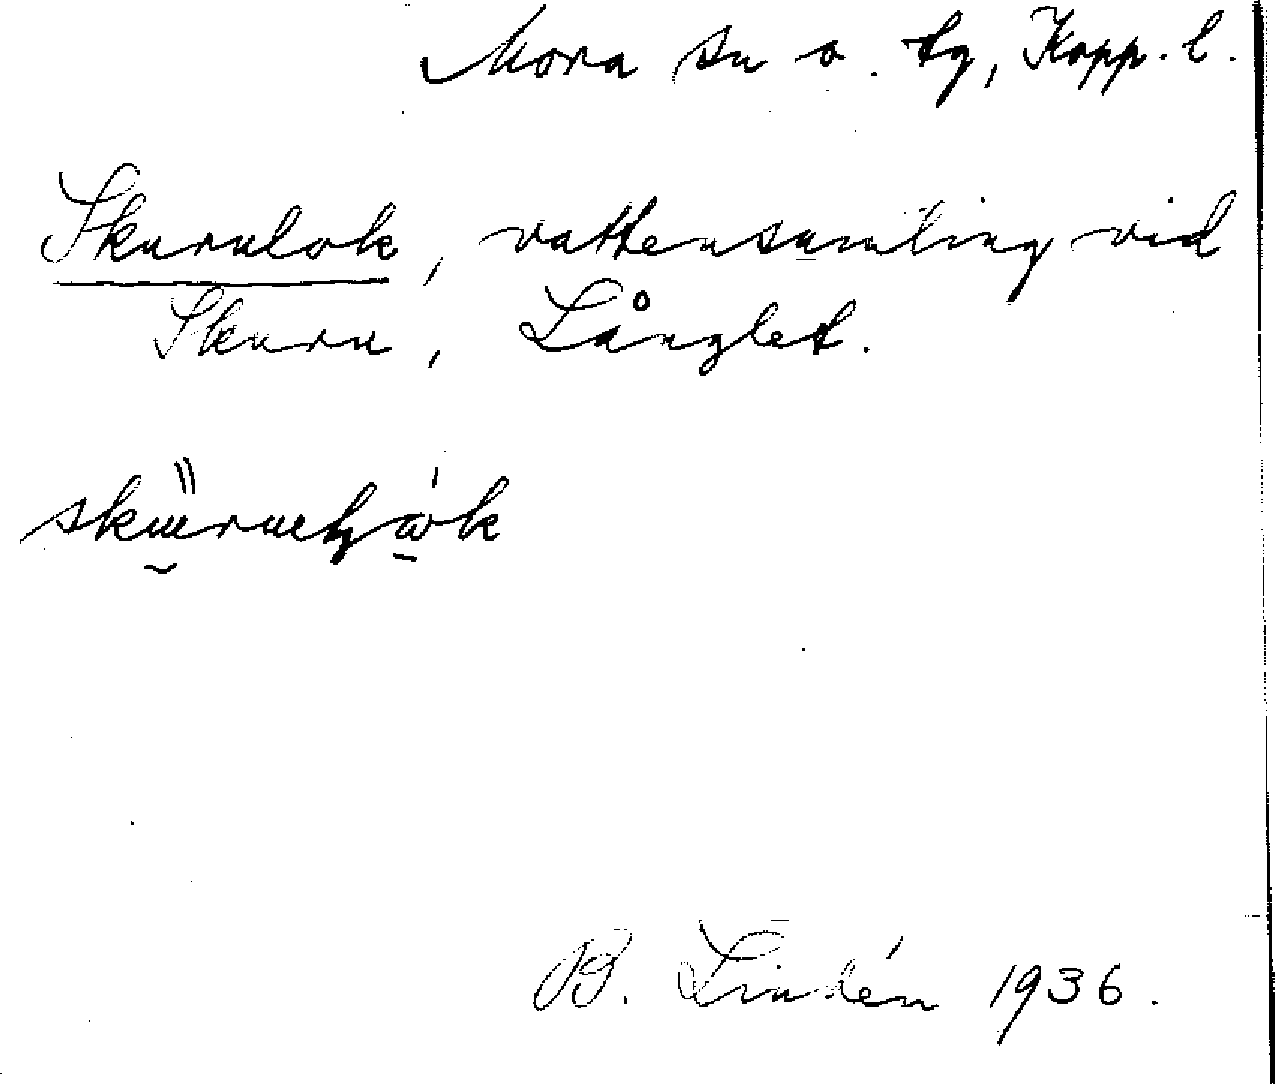 Mora sn o. tg, Kopp. l.
Skurulok, vattensamling vid
Skuru, Långlet.
B. Lindén 1936.